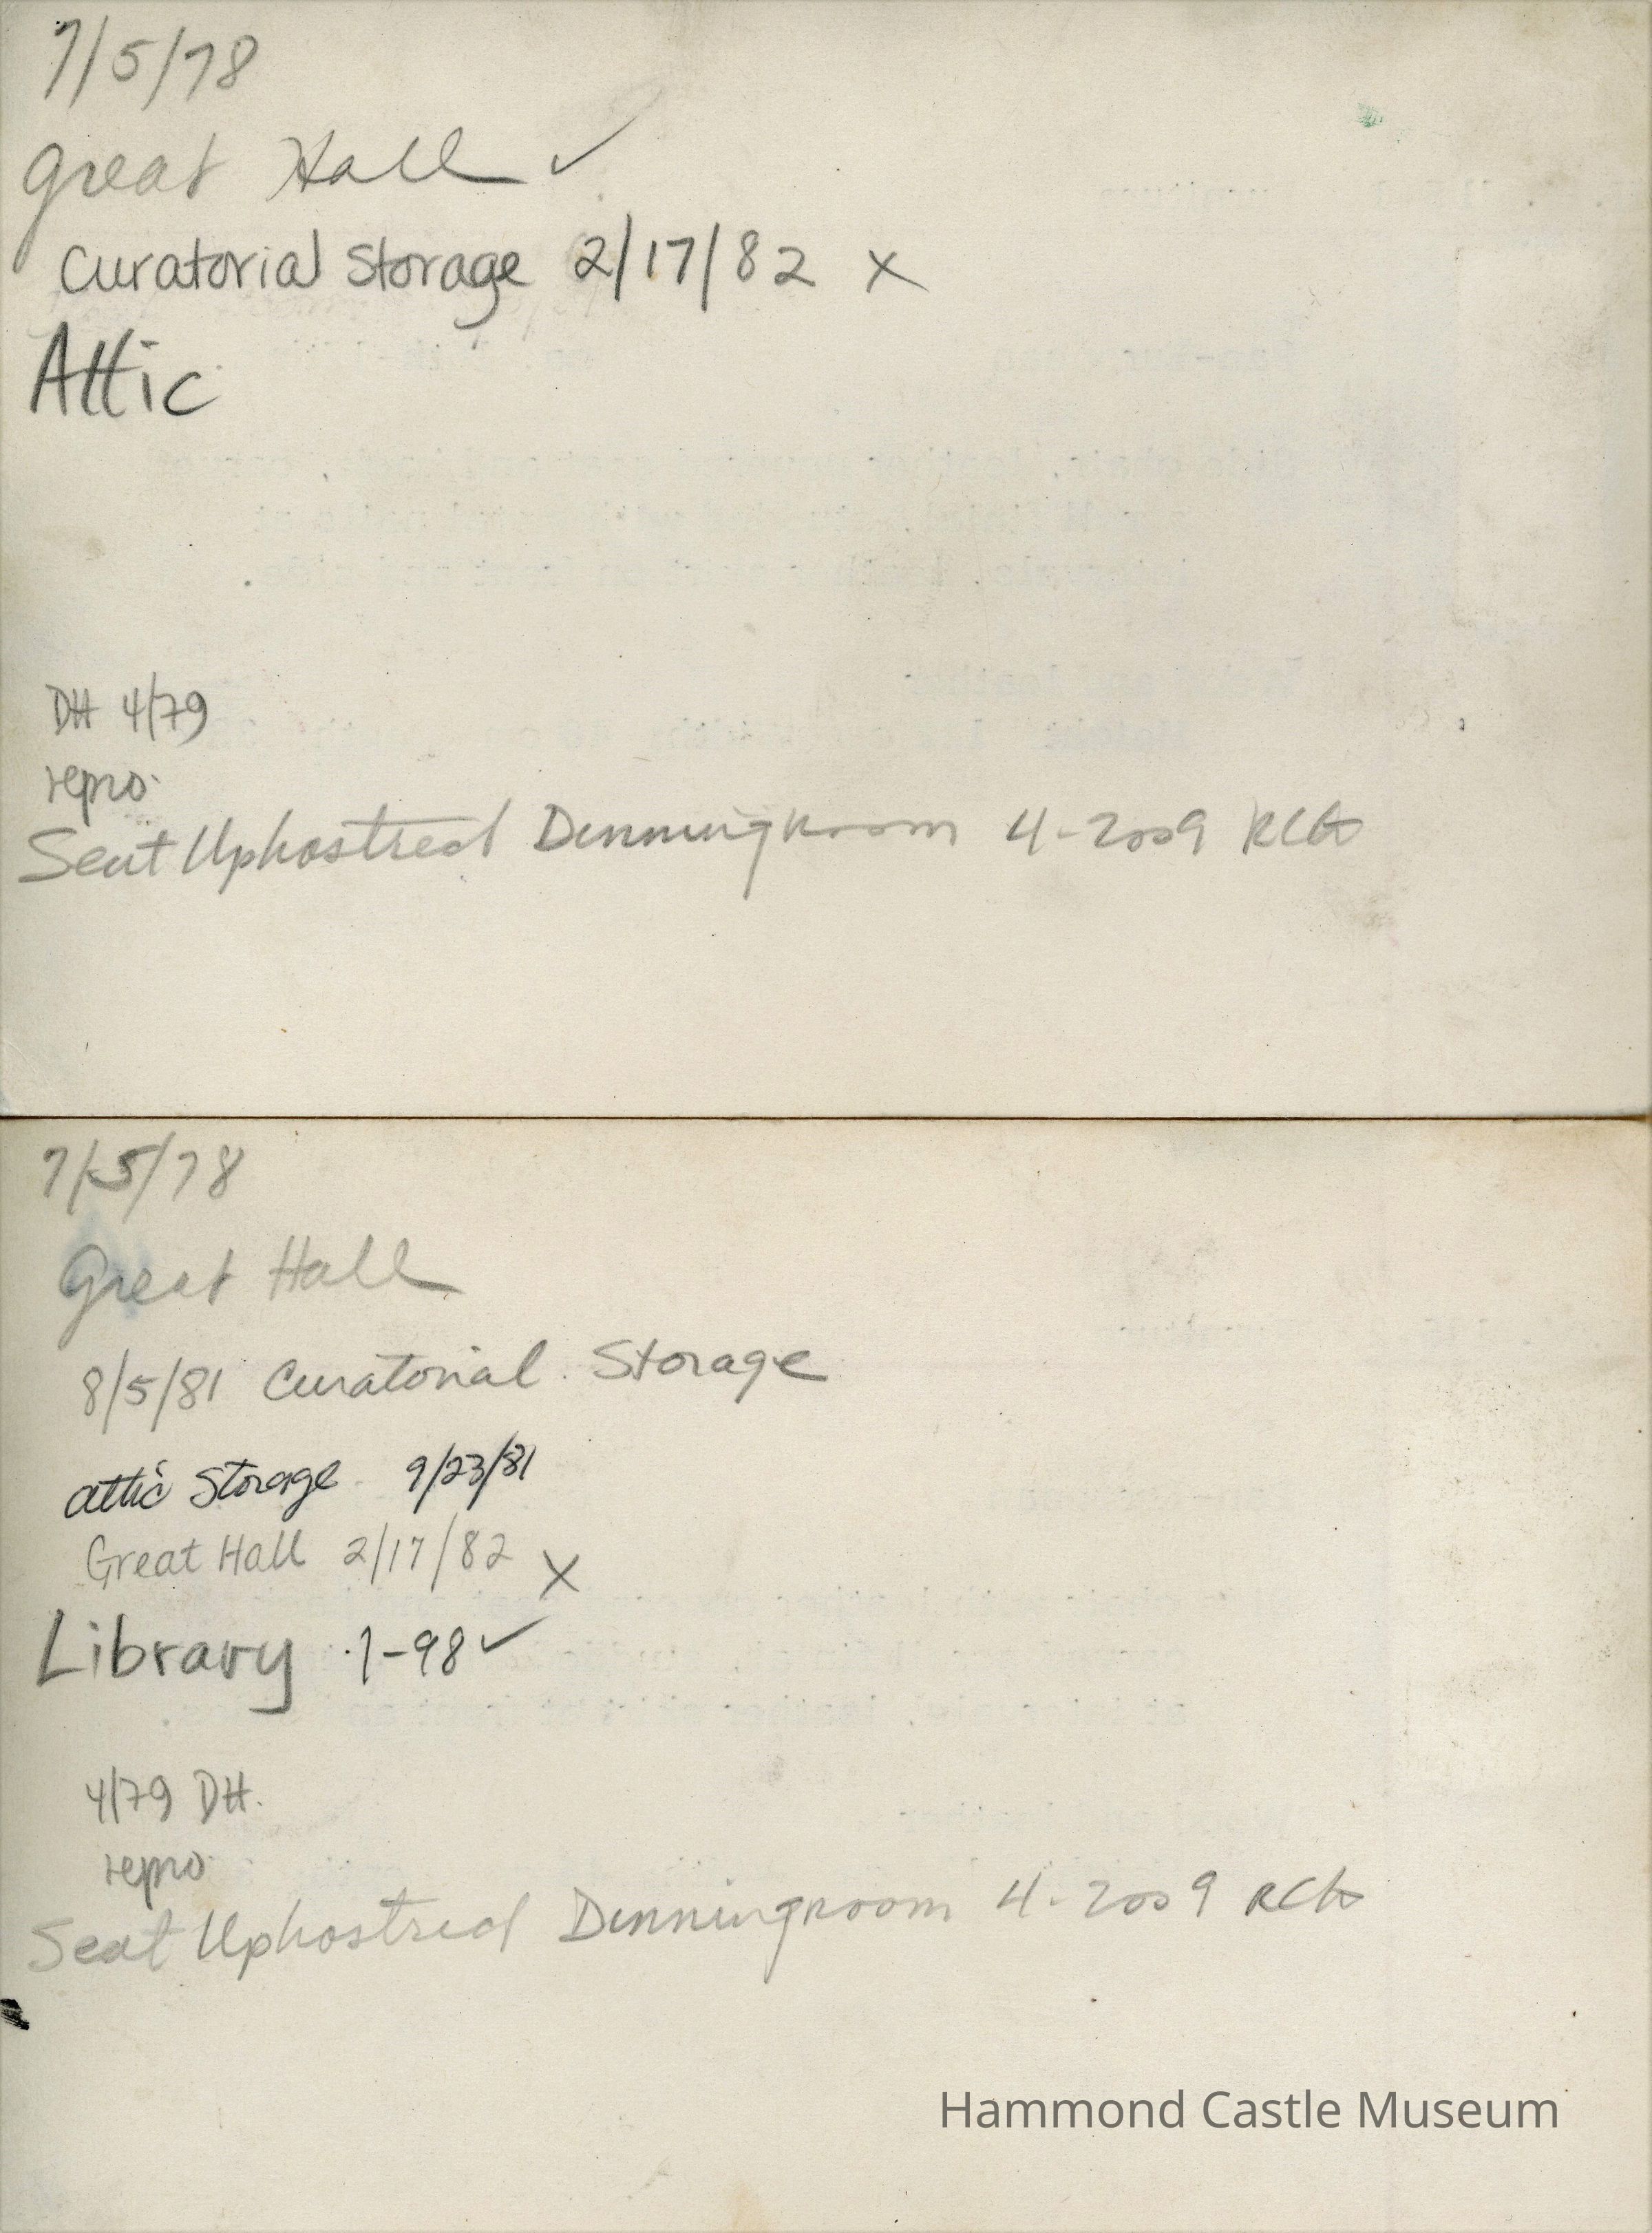 7/5/78
Great Hall ✓
Curatorial Storage 2/17/82 x
Attic
DH 4/79
repro.
Seat Uphostred Denningroom 4-2009
7/5/78
Great Hall
8/5/81 Curatorial Storage
attic Storage 9/23/81
Great Hall 2/17/82 x
Library 1-98 ✓
4/79 DH.
repro
Seat Uphostred Denningroom 4-2009
Hammond Castle Museum